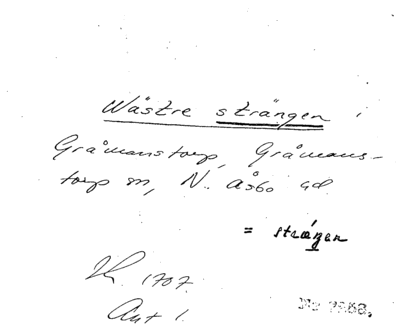 Wästre strängen
Gråmanstorp, Gråmans-
torp sn, N. Åsbo hd
= strängen
1707.
Ant 1.